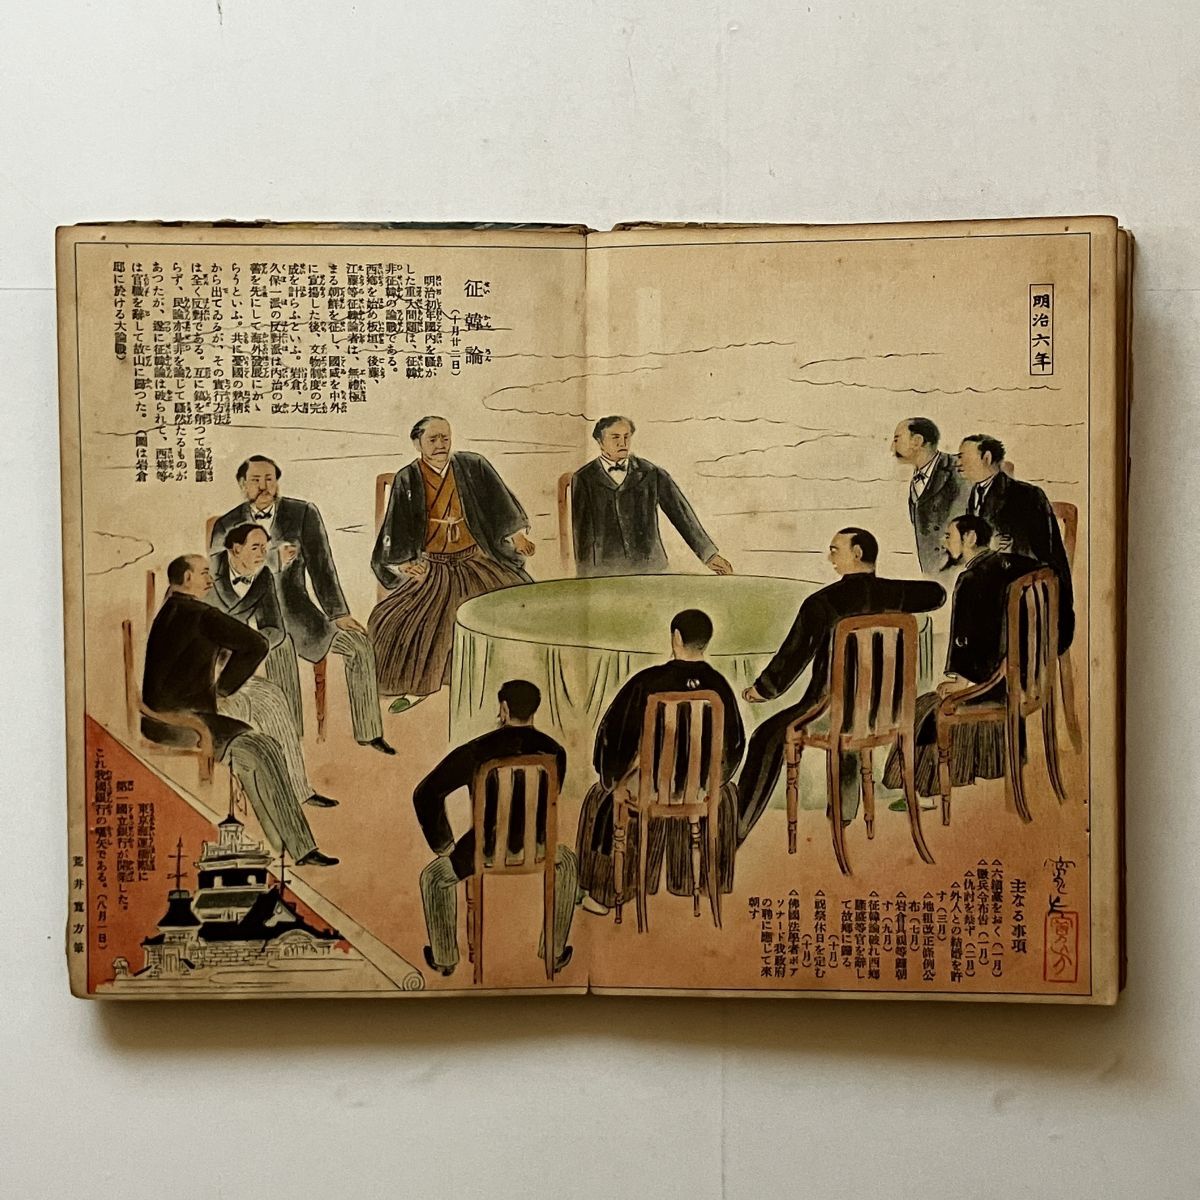 明治六年
征韓論
(十月廿二日)
明治初年國内を騒が
した重大問題は、征韓
非征韓の論戰である。
西郷を始め板垣、後藤、
江藤等征韓論者は、無禮極
まる朝鮮を征し、國威を中外
に宣揚した後、文物制度の完
成を計らふといふ。岩倉、大
久保一派の反對派は内治の改
善を先にして海外發展にかゝ
らうといふ。共に憂國の熱情
から出てゐるが、その實行方法
は全く反對である。互に鎬を削つて論戰讓
らず、民論亦是非を論じて騒然たるものが
あつたが、遂に征韓論は破られて、西郷等
は官職を辭して故山に歸つた。(圖は岩倉
邸に於ける大論戰)
主なる事項
△六鎮臺をおく(一月)
△徴兵令布告(一月)
△仇討を禁ず(二月)
△外人との結婚を許
す(三月)
△地租改正條例公
布(七月)
△岩倉具視等歸朝
す(九月)
△征韓論破れ西郷
隆盛等官を辭し
て故郷に歸る
(十月)
△祝祭休日を定む
(十月)
△佛國法學者ボア
ソナード我政府
の聘に應じて來
朝す
東京海運橋際に
第一國立銀行が開業した。
これ我國銀行の嚆矢である。(八月一日)
荒井寛方筆